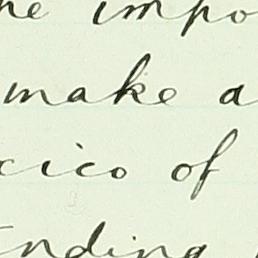 he impo
make a
cico of
nding